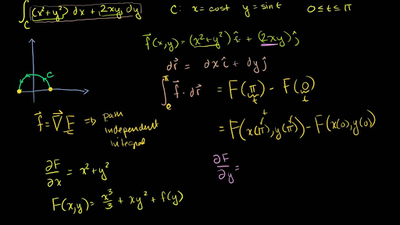 ∫_C (x²+y²) dx + 2xy dy
C: x = cos t y = sin t 0 ≤ t ≤ π
f⃗(x,y) = (x²+y²) î + (2xy) ĵ
dr⃗ = dx î + dy ĵ
∫_0^π f⃗ · dr⃗ = F(π) - F(0)
t t
C
f⃗ = ∇⃗F ⇒ path
independent
integral
= F(x(π), y(π)) - F(x(0), y(0))
∂F/∂x = x² + y²
∂F/∂y =
F(x,y) = x³/3 + xy² + f(y)